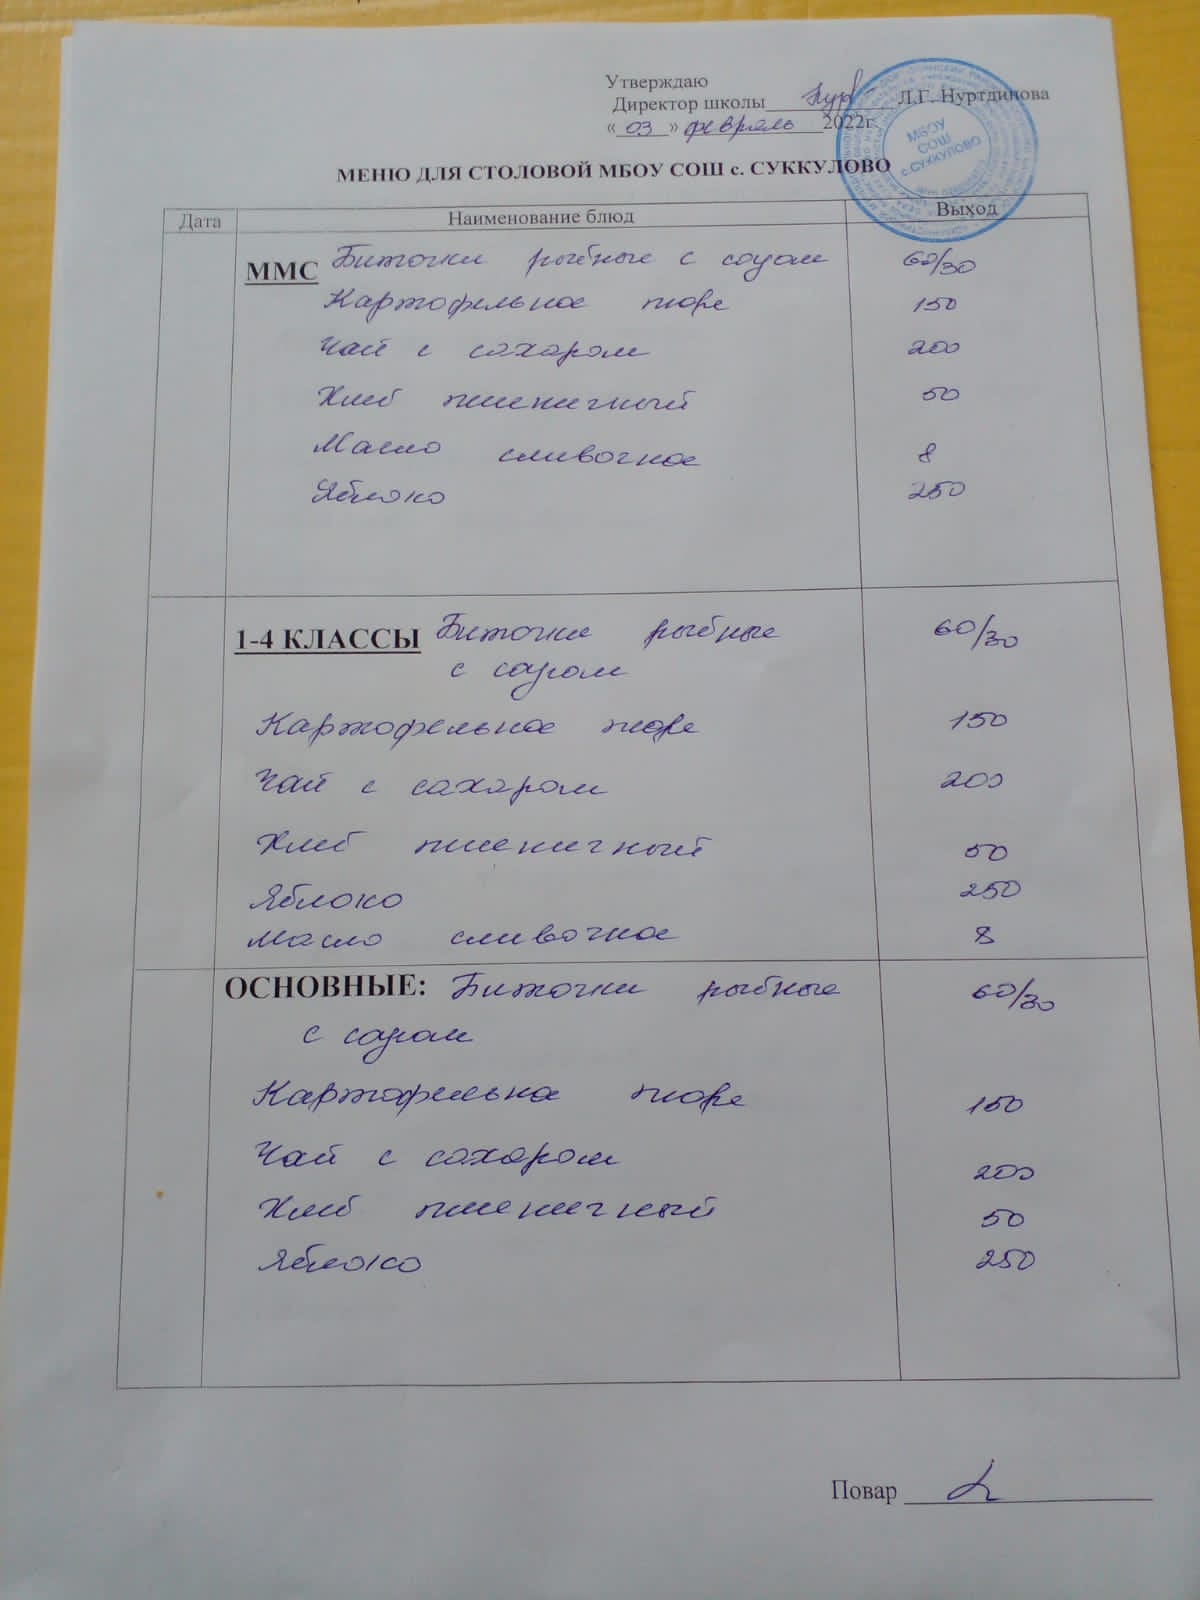 Утверждаю
Директор школы Л.Г. Нуртдинова
«03» февраль 2022г.
МБОУ
СОШ
с.СУККУЛОВО
МЕНЮ ДЛЯ СТОЛОВОЙ МБОУ СОШ с. СУККУЛОВО
Дата Наименование блюд Выход
ММС Биточки рыбные с соусом 60/30
Картофельное пюре 150
Чай с сахаром 200
Хлеб пшеничный 50
Масло сливочное 8
Яблоко 250
1-4 КЛАССЫ Биточки рыбные 60/30
с соусом
Картофельное пюре 150
Чай с сахаром 200
Хлеб пшеничный 50
Яблоко 250
Масло сливочное 8
ОСНОВНЫЕ: Биточки рыбные 60/30
с соусом
Картофельное пюре 150
Чай с сахаром 200
Хлеб пшеничный 50
Яблоко 250
Повар